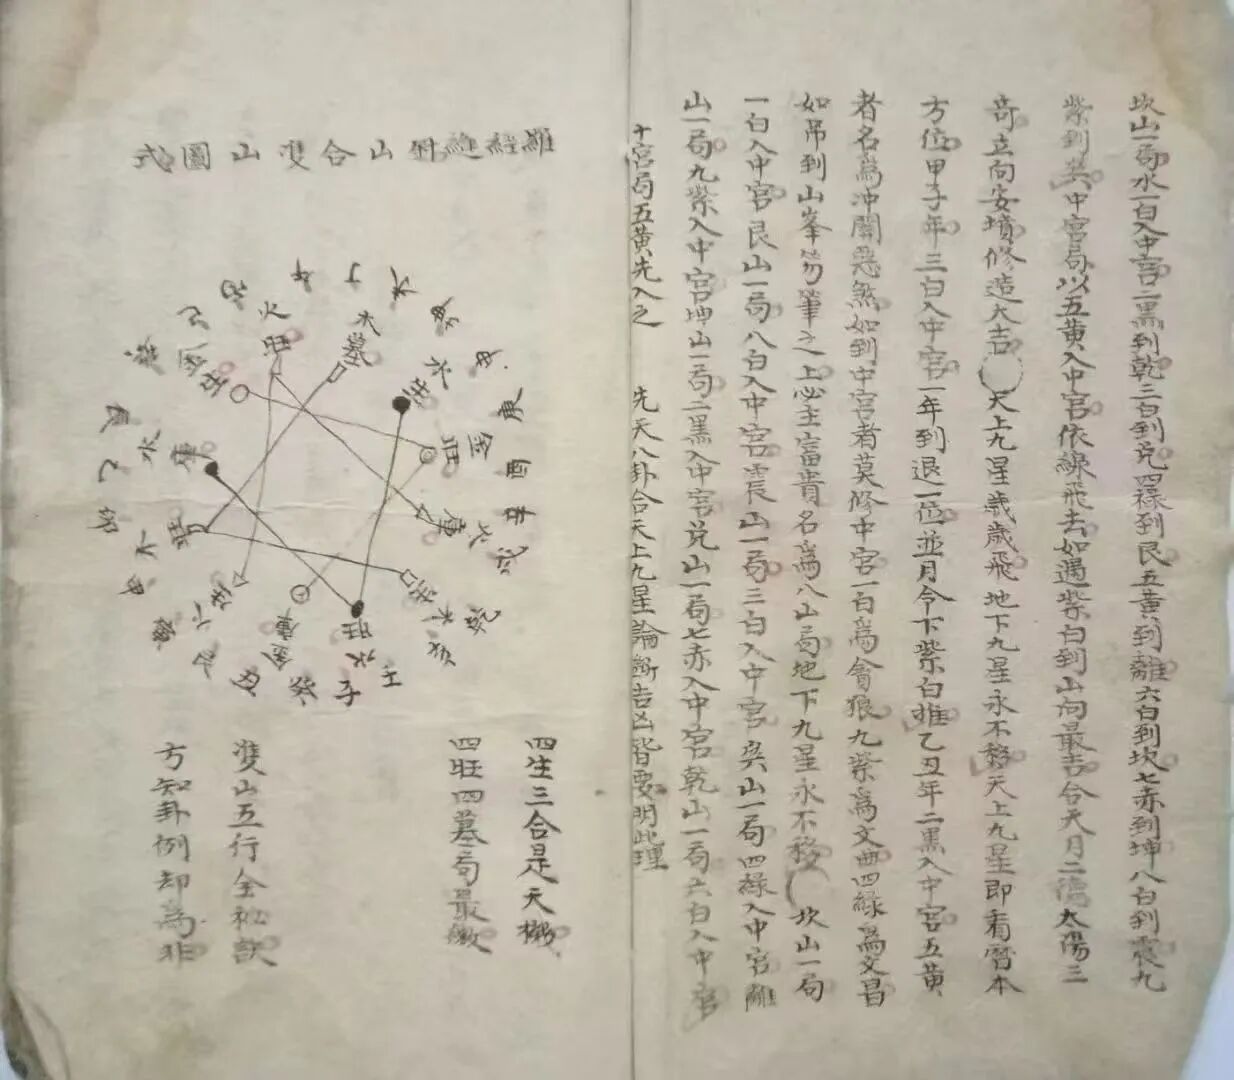 坎山一局水一白入中宮二黑到乾三白到兌四祿到艮五黃到離六白到坎七赤到坤八白到震九
紫到巽中宮局以五黃入中宮依綠飛去如遇紫白到山向最吉合天月二德太陽三
奇立向安墳修造大吉 天上九星歲歲飛地下九星永不移天上九星即看曆本
方位甲子年三白入中宮一年到退一位並月令下紫白推乙丑年二黑入中宮五黃
者名為冲關惡煞如到中宮者莫修中宮一白為會狼九紫為文曲四綠為文昌
如吊到山峯笏筆之上必主富貴名為八山局地下九星永不移 坎山一局
一白入中宮艮山一局八白入中宮震山一局三白入中宮巽山一局四祿入中宮離
山一局九紫入中宮坤山一局二黑入中宮兌山一局七赤入中宮乾山一局六白入中宮
十宮局五黃先入之 先天八卦合天上九星論斷吉凶皆要明此理
羅經縫針山合雙山圖式
午
丁
火
旺
木
墓
水
生
庚
金
旺
酉
辛
火
木
生
壬
子
癸
水
旺
金
水
木
旺
四生三合是天機
四旺四墓局最微
雙山五行全秘訣
方知卦例却為非